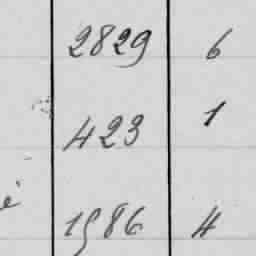 2829 6
423 1
1586 4